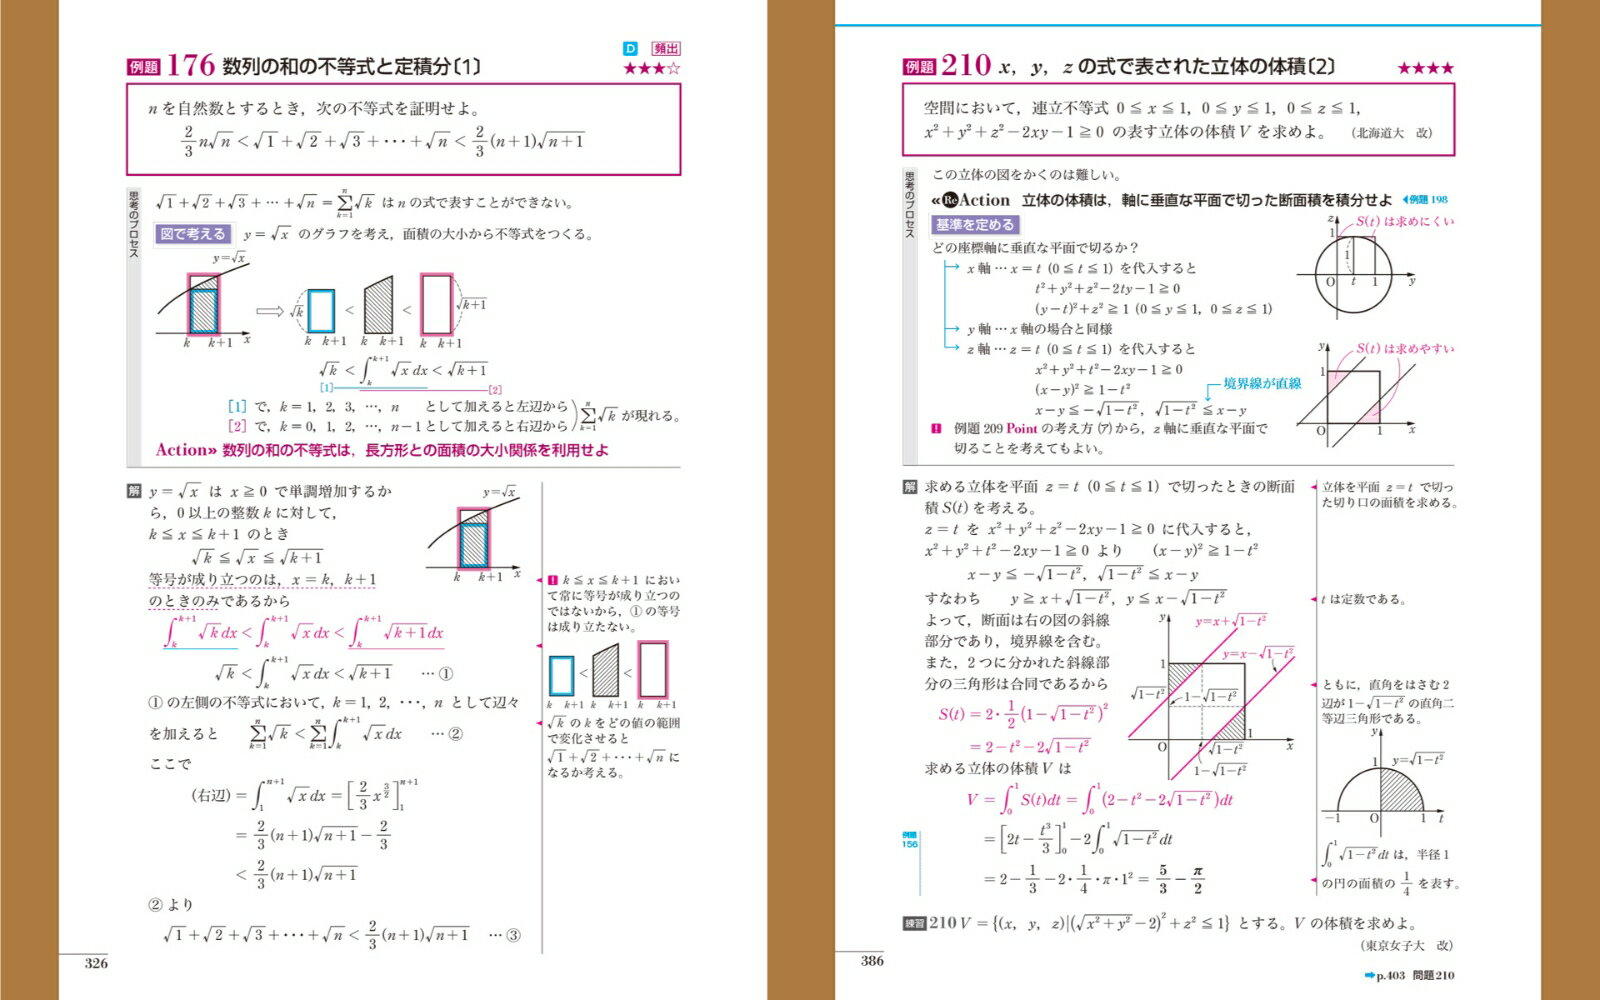 D 頻出
例題 176 数列の和の不等式と定積分〔1〕 ★★★☆
n を自然数とするとき，次の不等式を証明せよ。
2/3 n√n < √1 + √2 + √3 + ··· + √n < 2/3 (n+1)√(n+1)
思考のプロセス
√1 + √2 + √3 + … + √n = Σ[k=1→n] √k は n の式で表すことができない。
図で考える y = √x のグラフを考え，面積の大小から不等式をつくる。
y=√x
k k+1 x
√k < < √(k+1)
k k+1 k k+1 k k+1
√k < ∫[k→k+1] √x dx < √(k+1)
[1] [2]
[1] で，k = 1, 2, 3, …, n として加えると左辺から
[2] で，k = 0, 1, 2, …, n−1 として加えると右辺から
Σ[k=1→n] √k が現れる。
Action» 数列の和の不等式は，長方形との面積の大小関係を利用せよ
解 y = √x は x ≧ 0 で単調増加するか
ら，0 以上の整数 k に対して，
k ≦ x ≦ k+1 のとき
√k ≦ √x ≦ √(k+1)
等号が成り立つのは，x = k, k+1
のときのみであるから
∫[k→k+1] √k dx < ∫[k→k+1] √x dx < ∫[k→k+1] √(k+1) dx
√k < ∫[k→k+1] √x dx < √(k+1) …①
① の左側の不等式において，k = 1, 2, ···, n として辺々
を加えると Σ[k=1→n] √k < Σ[k=1→n] ∫[k→k+1] √x dx …②
ここで
(右辺) = ∫[1→n+1] √x dx = [2/3 x^(3/2)][1→n+1]
= 2/3 (n+1)√(n+1) − 2/3
< 2/3 (n+1)√(n+1)
② より
√1 + √2 + √3 + ··· + √n < 2/3 (n+1)√(n+1) …③
y=√x
k k+1 x
! k ≦ x ≦ k+1 におい
て常に等号が成り立つの
ではないから，① の等号
は成り立たない。
< <
k k+1 k k+1 k k+1
√k の k をどの値の範囲
で変化させると
√1 + √2 + ··· + √n に
なるか考える。
326
例題 210 x, y, z の式で表された立体の体積〔2〕 ★★★★
空間において，連立不等式 0 ≦ x ≦ 1, 0 ≦ y ≦ 1, 0 ≦ z ≦ 1,
x² + y² + z² − 2xy − 1 ≧ 0 の表す立体の体積 V を求めよ。 （北海道大 改）
思考のプロセス
この立体の図をかくのは難しい。
«ReAction 立体の体積は，軸に垂直な平面で切った断面積を積分せよ ◀例題 198
基準を定める
どの座標軸に垂直な平面で切るか？
x 軸 … x = t (0 ≦ t ≦ 1) を代入すると
t² + y² + z² − 2ty − 1 ≧ 0
(y − t)² + z² ≧ 1 (0 ≦ y ≦ 1, 0 ≦ z ≦ 1)
y 軸 … x 軸の場合と同様
z 軸 … z = t (0 ≦ t ≦ 1) を代入すると
x² + y² + t² − 2xy − 1 ≧ 0
(x − y)² ≧ 1 − t²
境界線が直線
x − y ≦ −√(1−t²), √(1−t²) ≦ x − y
! 例題 209 Point の考え方 (ア) から，z 軸に垂直な平面で
切ることを考えてもよい。
z S(t) は求めにくい
1
1
O t 1 y
y S(t) は求めやすい
1
O 1 x
解 求める立体を平面 z = t (0 ≦ t ≦ 1) で切ったときの断面
積 S(t) を考える。
z = t を x² + y² + z² − 2xy − 1 ≧ 0 に代入すると，
x² + y² + t² − 2xy − 1 ≧ 0 より (x − y)² ≧ 1 − t²
x − y ≦ −√(1−t²), √(1−t²) ≦ x − y
すなわち y ≧ x + √(1−t²), y ≦ x − √(1−t²)
よって，断面は右の図の斜線
部分であり，境界線を含む。
また，2 つに分かれた斜線部
分の三角形は合同であるから
S(t) = 2・1/2 (1 − √(1−t²))²
= 2 − t² − 2√(1−t²)
求める立体の体積 V は
V = ∫[0→1] S(t)dt = ∫[0→1] (2 − t² − 2√(1−t²))dt
例題 156
= [2t − t³/3][0→1] − 2∫[0→1] √(1−t²) dt
= 2 − 1/3 − 2・1/4・π・1² = 5/3 − π/2
y y=x+√(1−t²)
y=x−√(1−t²)
1
√(1−t²) 1−√(1−t²)
O 1 x
√(1−t²)
1−√(1−t²)
立体を平面 z = t で切っ
た切り口の面積を求める。
t は定数である。
ともに，直角をはさむ 2
辺が 1−√(1−t²) の直角二
等辺三角形である。
y
1 y=√(1−t²)
−1 O 1 t
∫[0→1] √(1−t²) dt は，半径 1
の円の面積の 1/4 を表す。
練習 210 V = {(x, y, z)|(√(x²+y²) − 2)² + z² ≦ 1} とする。V の体積を求めよ。
（東京女子大 改）
386
➡p.403 問題210